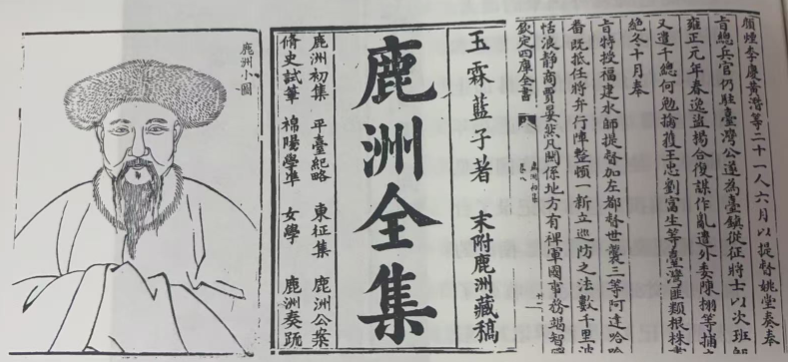 顏煙李慶黃潛等二十一人六月以提督姚堂奏奉
旨總兵官仍駐臺灣公遂為臺鎮從征將士以次班
雍正元年春逸盜楊合復謀作亂遣外委陳栩等捕
又遣千總何勉擒獲王忠劉富生等臺灣匪類根株
絕冬十月奉
旨特授福建水師提督加左都督世襲三等阿達哈
番既抵任將弁行陣整頓一新立巡防之法數千里波
恬浪靜商賈晏然凡關係地方有裨軍國事務竭智
欽定四庫全書
鹿洲初集
卷八
玉霖藍子著 末附鹿洲藏稿
鹿洲全集
鹿洲初集 平臺紀略 東征集 鹿洲公案
脩史試筆 棉陽學準 女學 鹿洲奏疏
鹿洲小圖